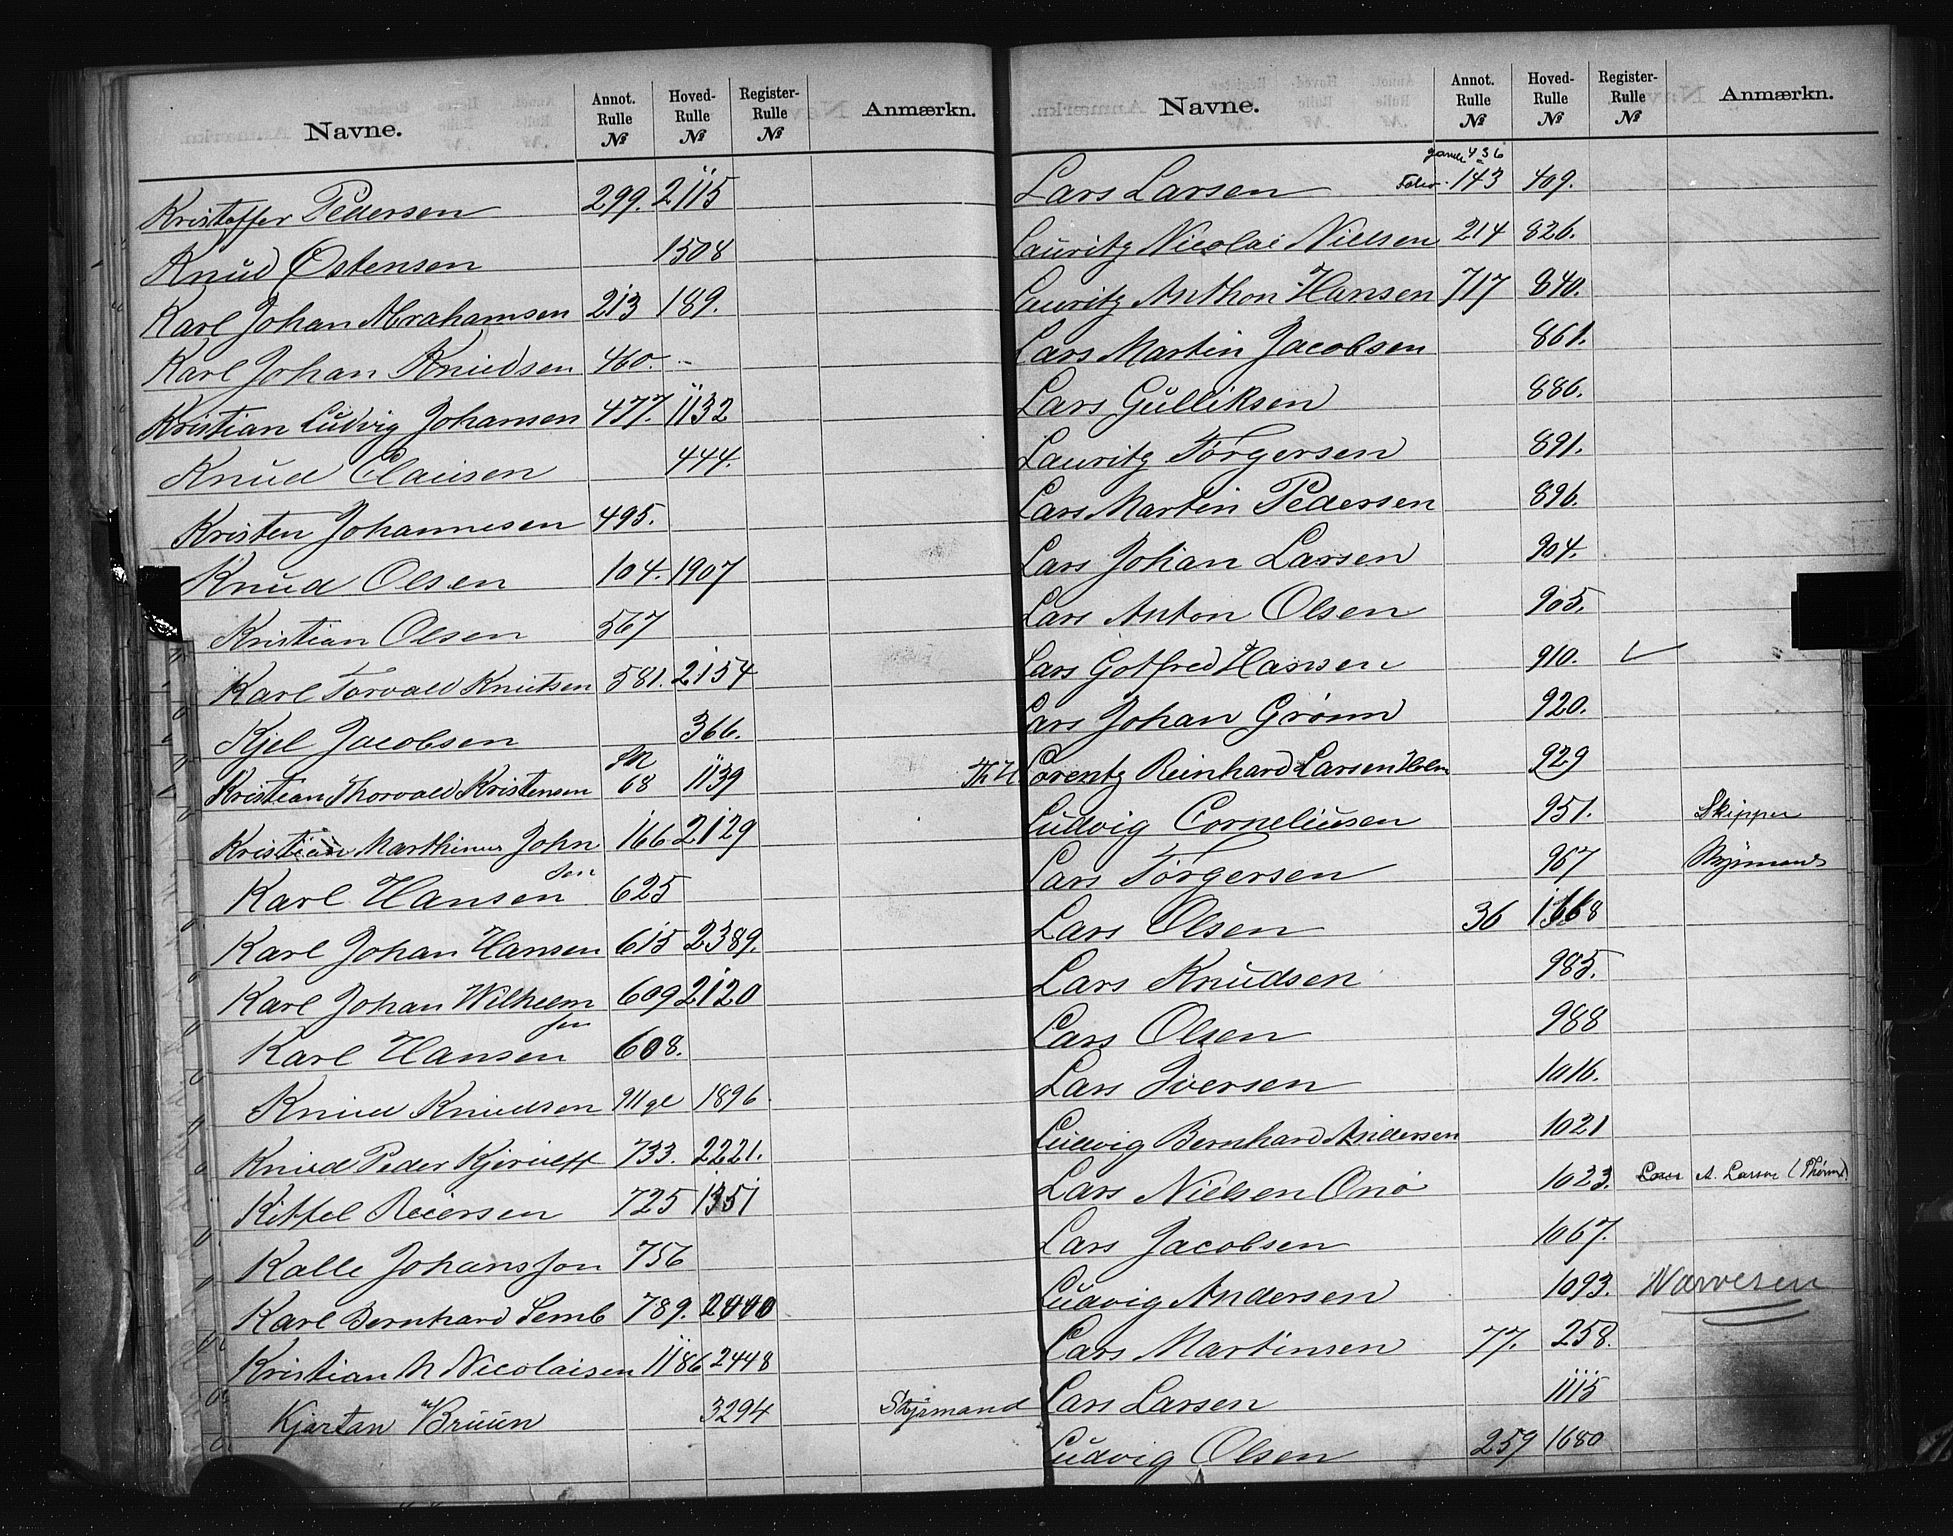 Navne. Annot. Rulle № Hoved- Rulle № Register- Rulle № Anmærkn.
Kristoffer Pedersen 299. 2115
Knud Østensen 1508
Karl Johan Abrahamsen 213 189.
Karl Johan Knudsen 460.
Kristian Ludvig Johansen 477. 1132
Knud Clausen 444.
Kristen Johannesen 495.
Knud Olsen 104. 1907
Kristian Olsen 567
Karl Torvald Knutsen 581. 2154
Kjel Jacobsen 366.
Kristian Thorvald Kristensen 68 1139
Kristian Marthinus John 166 2129
sen
Karl Hansen 625
Karl Johan Hansen 615 2389.
Karl Johan Wilhelm 609 2120
sen
Karl Hansen 608.
Knud Knudsen 911 gl 1896
Knud Peder Kjerulff 733. 2221.
Kittel Reiersen 725 1351
Kalle Johansson 756
Karl Bernhard Lemb 789. 2440
Kristian M Nicolaisen 1186 2448
Kjartan Bruun 3294 Styrmand
Navne. Annot. Rulle № Hoved- Rulle № Register- Rulle № Anmærkn.
gamle 436
Lars Larsen 143 409.
Lauritz Nicolai Nielsen 214 826.
Lauritz Anthon Hansen 717 840.
Lars Martin Jacobsen 861.
Lars Gulliksen 886.
Lauritz Torgersen 891.
Lars Martin Pedersen 896.
Lars Johan Larsen 904.
Lars Anton Olsen 905.
Lars Gotfred Hansen 910. ✓
Lars Johan Grönn 920.
Lorentz Reinhard Larsen Holm 929
Ludvig Corneliusen 951. Skipper
Lars Torgersen 967 Styrmand
Lars Olsen 36 1368
Lars Knudsen 985.
Lars Olsen 988
Lars Iversen 1016.
Ludvig Bernhard Andersen 1021
Lars Nielsen Onö 1023. Lars A. Larsen
Lars Jacobsen 1067.
Ludvig Andersen 1093. Narvesen
Lars Martinsen 77. 258.
Lars Larsen 1115
Ludvig Olsen 259 1680